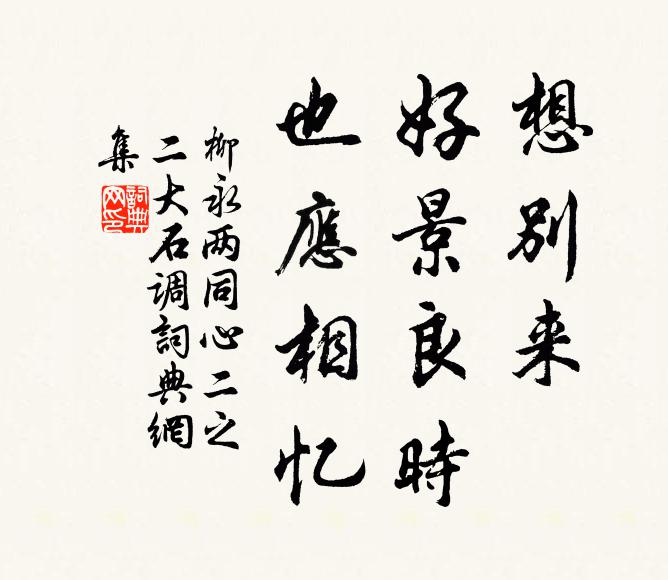 想别来
好景良時
也應相忆
柳永两同心二之
二大石调詞典網
集
詞典网印